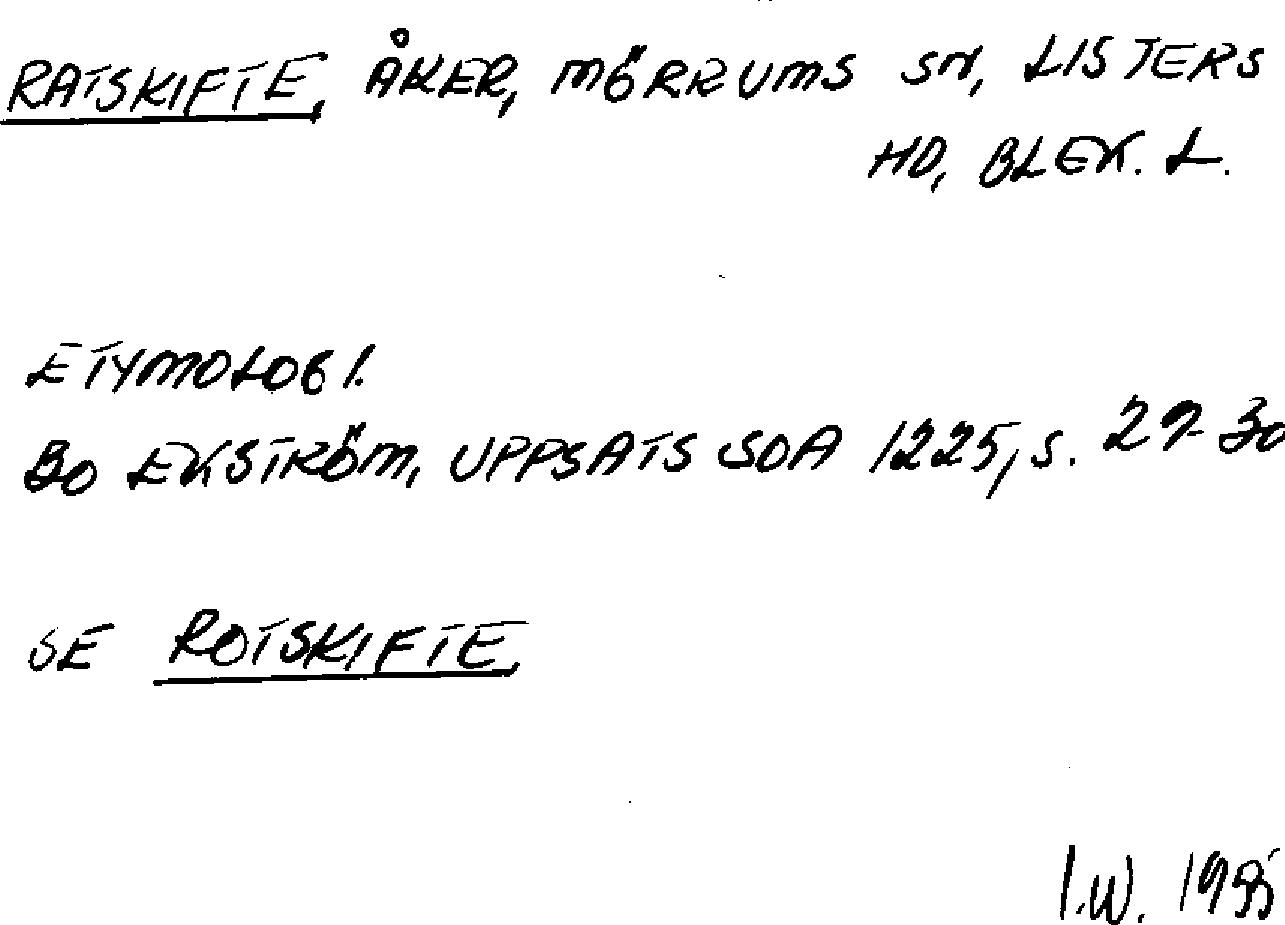 RATSKIFTE, ÅKER, MÖRRUMS SN, LISTERS
HD, BLEK. L.
ETYMOLOGI.
BO EKSTRÖM, UPPSATS SOA 1225, S. 29-30
SE ROTSKIFTE,
I.W. 1995